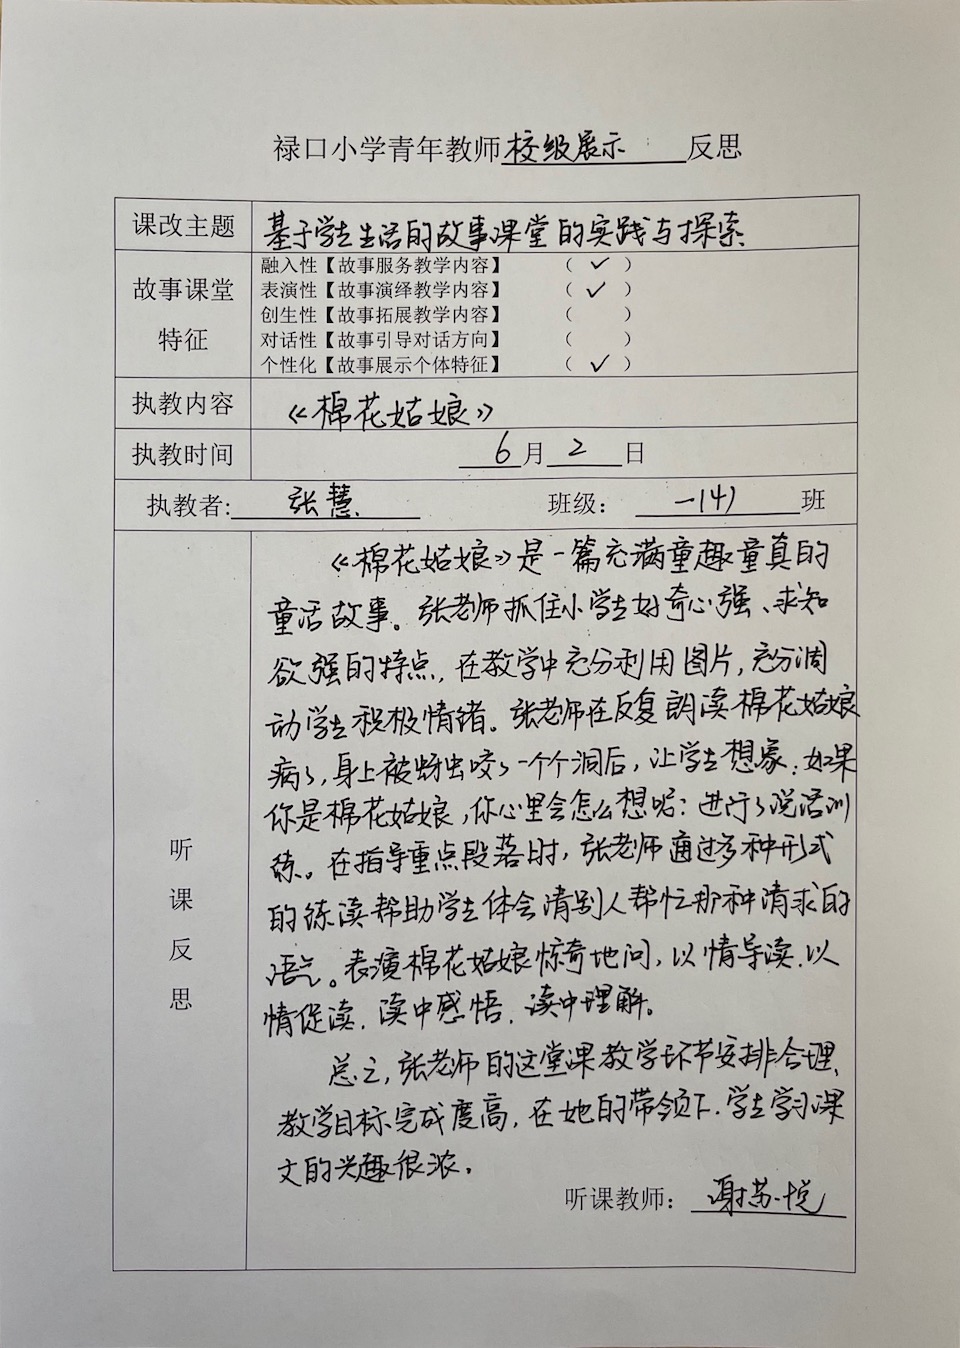 禄口小学青年教师校级展示反思
课改主题 基于学生生活的故事课堂的实践与探索
故事课堂
特征
融入性【故事服务教学内容】 （ ✓ ）
表演性【故事演绎教学内容】 （ ✓ ）
创生性【故事拓展教学内容】 （ ）
对话性【故事引导对话方向】 （ ）
个性化【故事展示个体特征】 （ ✓ ）
执教内容 《棉花姑娘》
执教时间 6月2日
执教者: 张慧 班级： 一(4)班
听
课
反
思
《棉花姑娘》是一篇充满童趣童真的
童话故事。张老师抓住小学生好奇心强、求知
欲强的特点，在教学中充分利用图片，充分调
动学生积极情绪。张老师在反复朗读棉花姑娘
病了，身上被蚜虫咬了一个个洞后，让学生想象：如果
你是棉花姑娘，你心里会怎么想呢：进行了说话训
练。在指导重点段落时，张老师通过多种形式
的练读帮助学生体会请别人帮忙那种请求的
语气。表演棉花姑娘惊奇地问，以情导读、以
情促读、读中感悟、读中理解。
总之，张老师的这堂课教学环节安排合理、
教学目标完成度高，在她的带领下、学生学习课
文的兴趣很浓。
听课教师： 谢苏悦